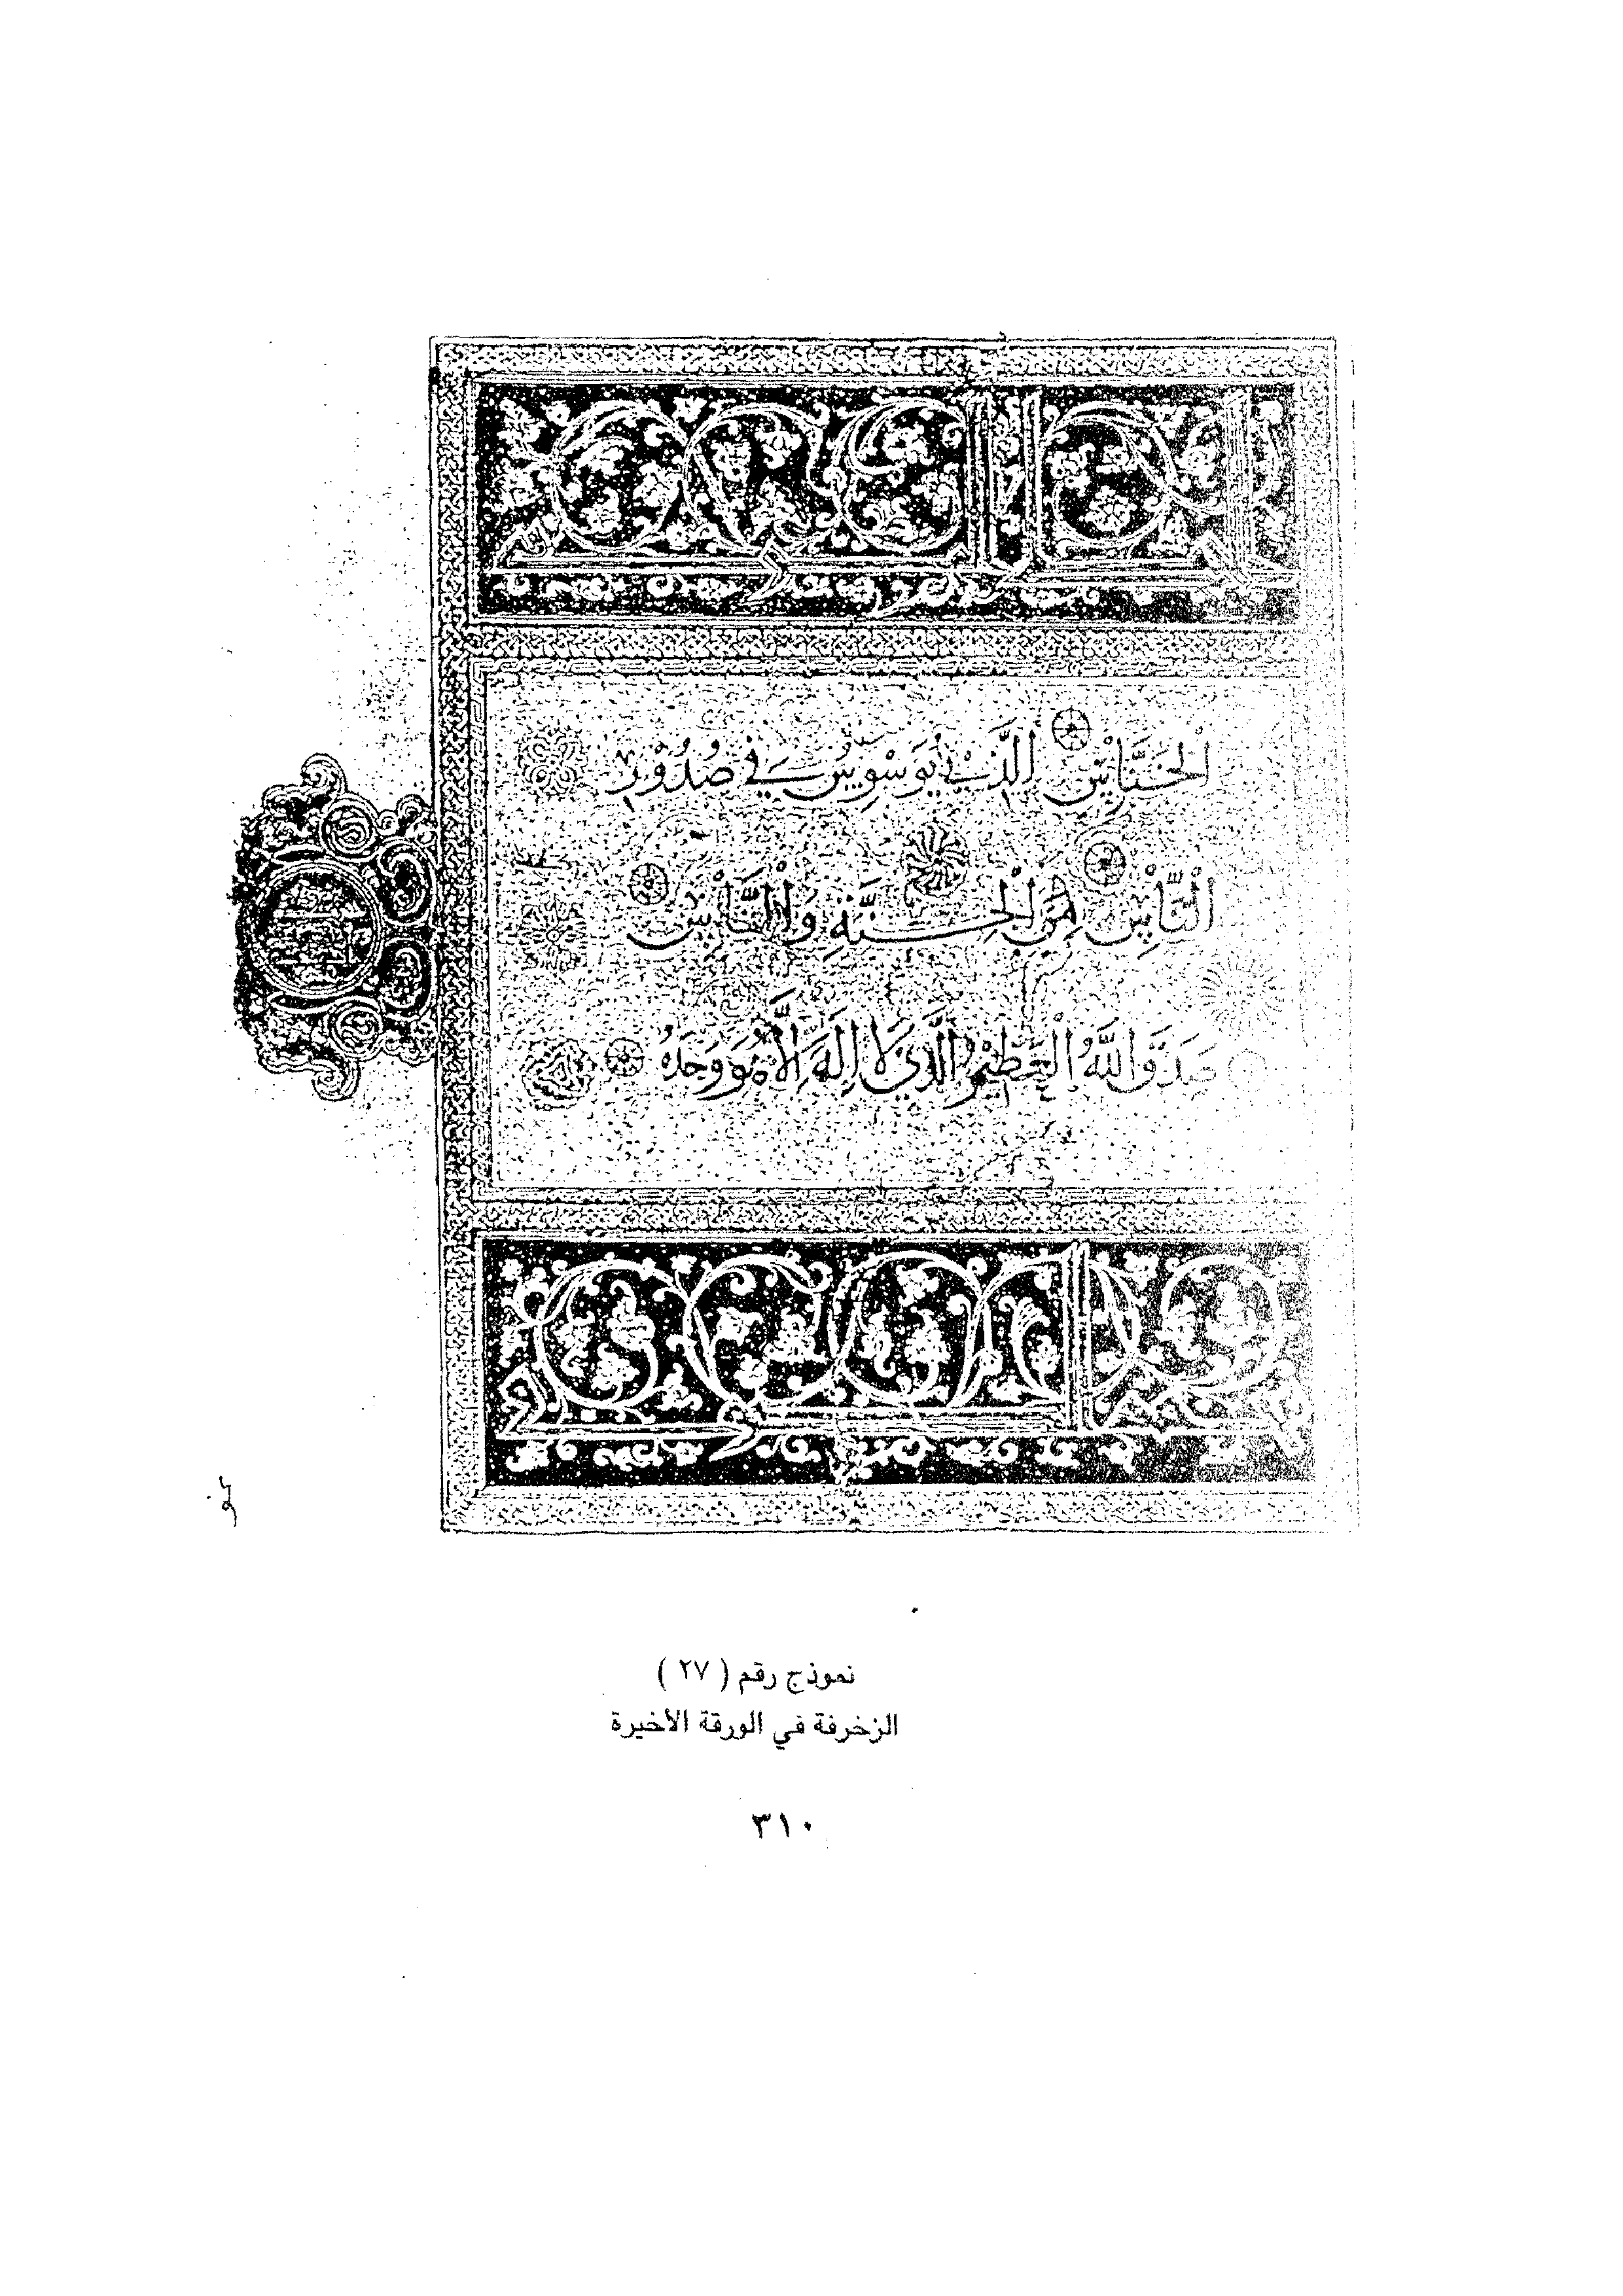 الْخَنَّاسِ الَّذِي يُوَسْوِسُ فِي صُدُورِ
النَّاسِ مِنَ الْجِنَّةِ وَالنَّاسِ
صَدَقَ اللَّهُ الْعَظِيمُ الَّذِي لَا إِلَهَ إِلَّا هُوَ وَحْدَهُ
نموذج رقم ( ٢٧ )
الزخرفة في الورقة الأخيرة
٣١٠